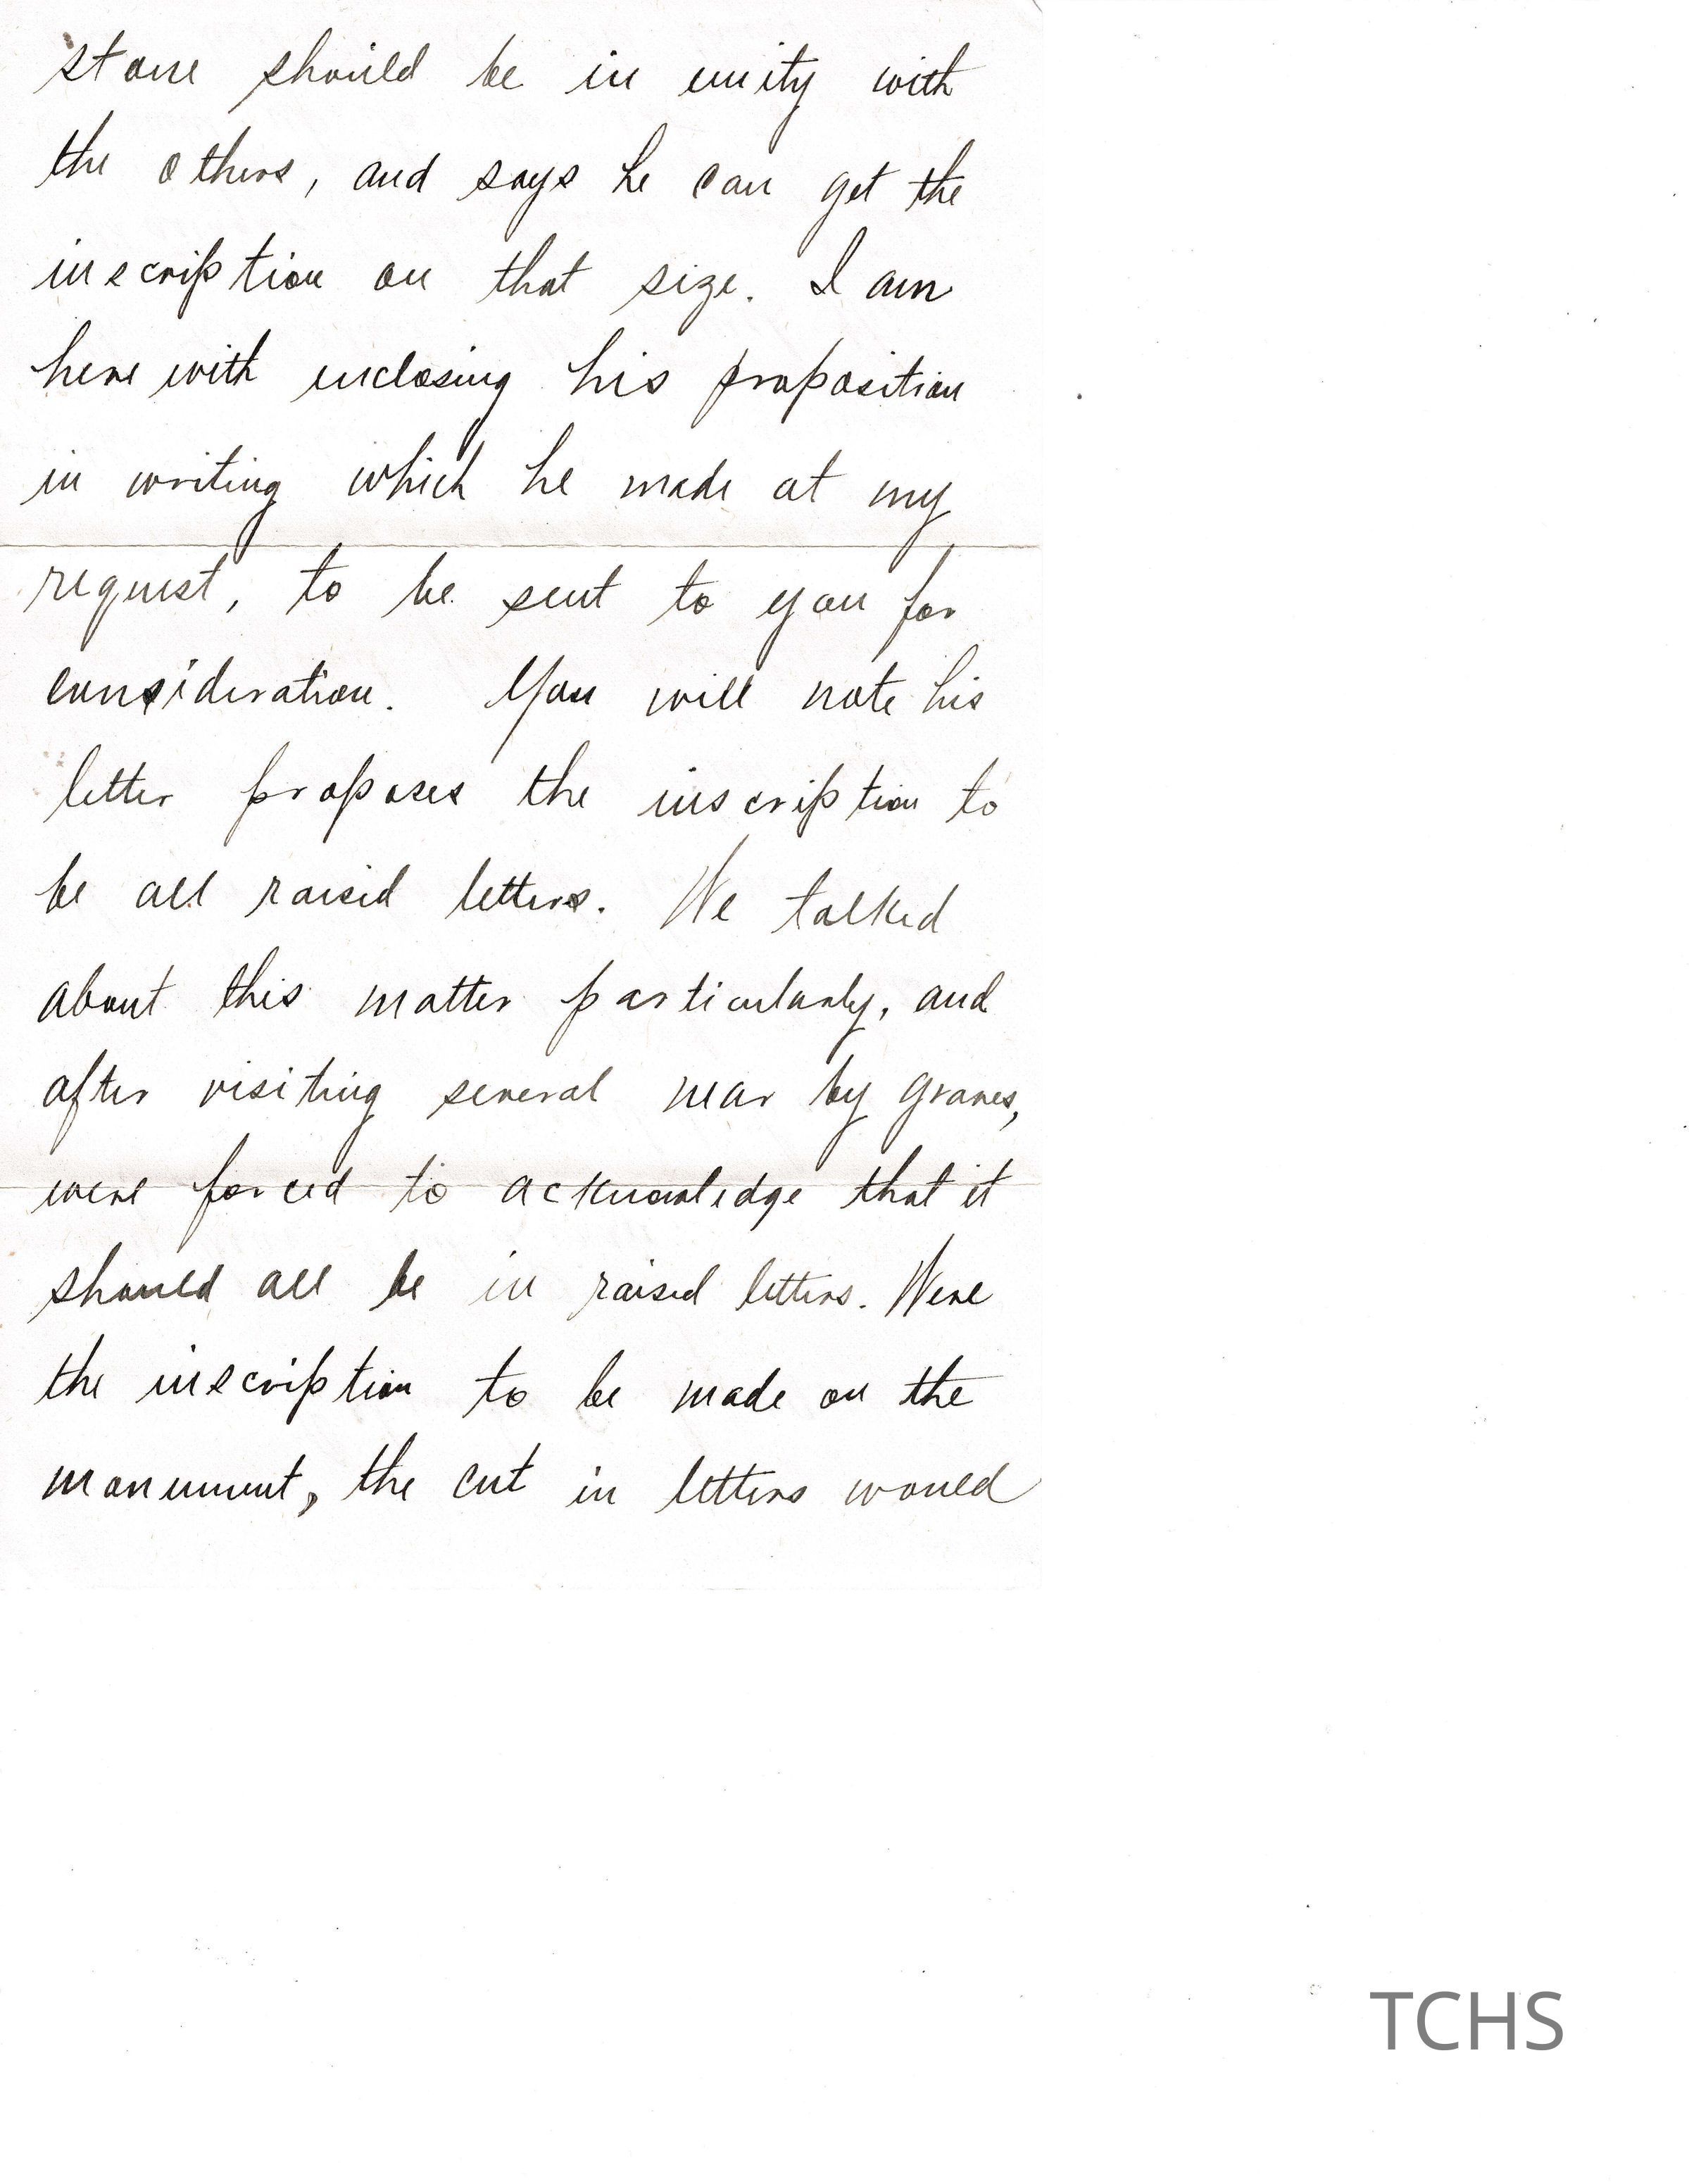 stone should be in unity with
the others, and says he can get the
inscription on that size. I am
here with enclosing his proposition
in writing which he made at my
request, to be sent to you for
consideration. You will note his
letter proposes the inscription to
be all raised letters. We talked
about this matter particularly, and
after visiting several near by graves,
were forced to acknowledge that it
should all be in raised letters. Were
the inscription to be made on the
monument, the cut in letters would
TCHS